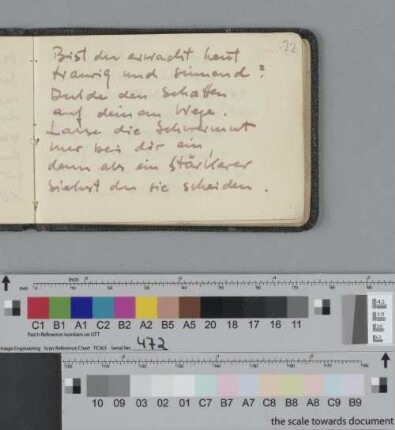 22
Bist du erwacht heut
traurig und sinnend:
Dulde den Schatten
auf deinem Wege.
Lasse die Schwermut
nur bei dir ein,
denn als ein Stärkerer
siehst du sie scheiden.
inch
mm
C1 B1 A1 C2 B2 A2 B5 A5 20 18 17 16 11
Patch Reference numbers on UTT
Image Engineering Scan Reference Chart TE263 Serial No. 472
10 09 03 02 01 C7 B7 A7 C8 B8 A8 C9 B9
the scale towards document